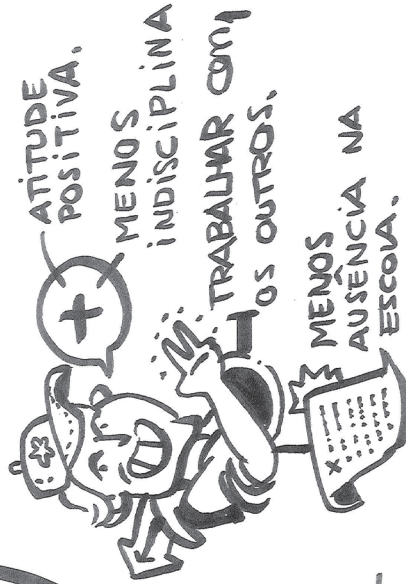 +
ATITUDE
POSITIVA.
MENOS
INDISCIPLINA
TRABALHAR COM
OS OUTROS.
MENOS
AUSÊNCIA NA
ESCOLA.